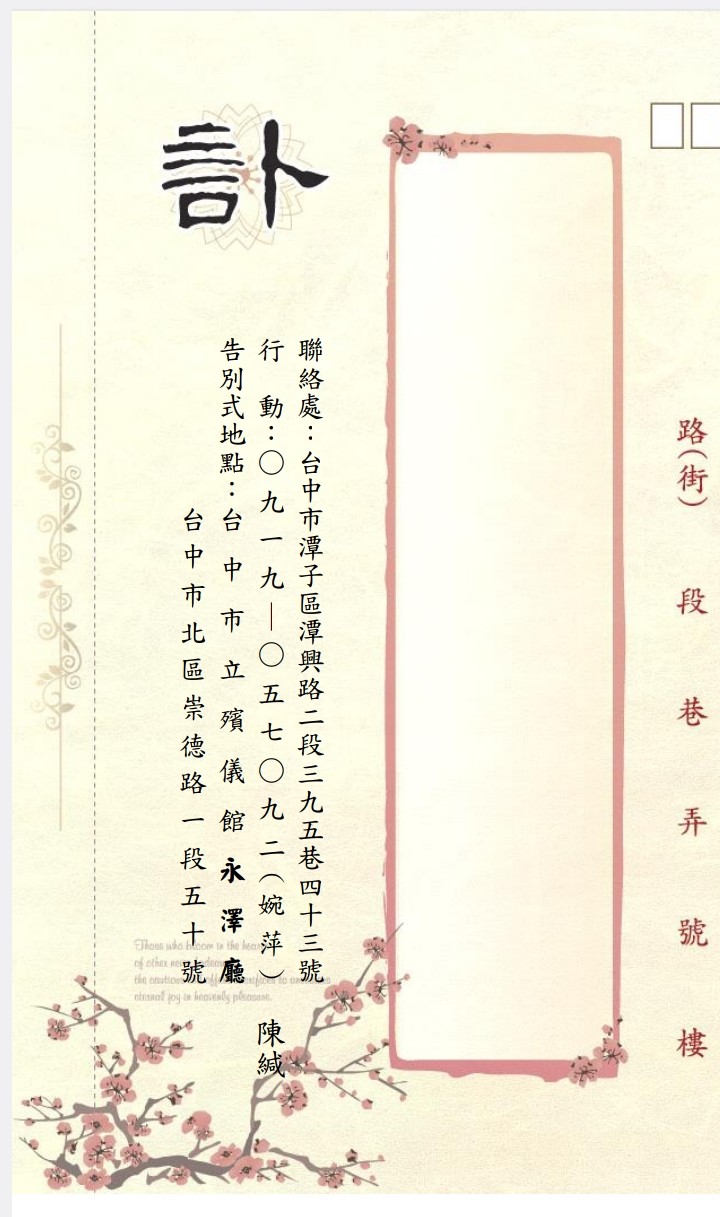 路(街) 段 巷 弄 號 樓
訃
聯絡處：台中市潭子區潭興路二段三九五巷四十三號
行 動：〇九一九—〇五七〇九二(婉萍) 陳緘
告別式地點：台中市立殯儀館永澤廳
台中市北區崇德路一段五十號
Those who bloom in the hear
of other
the cautious
eternal joy in heavenly pleasure.